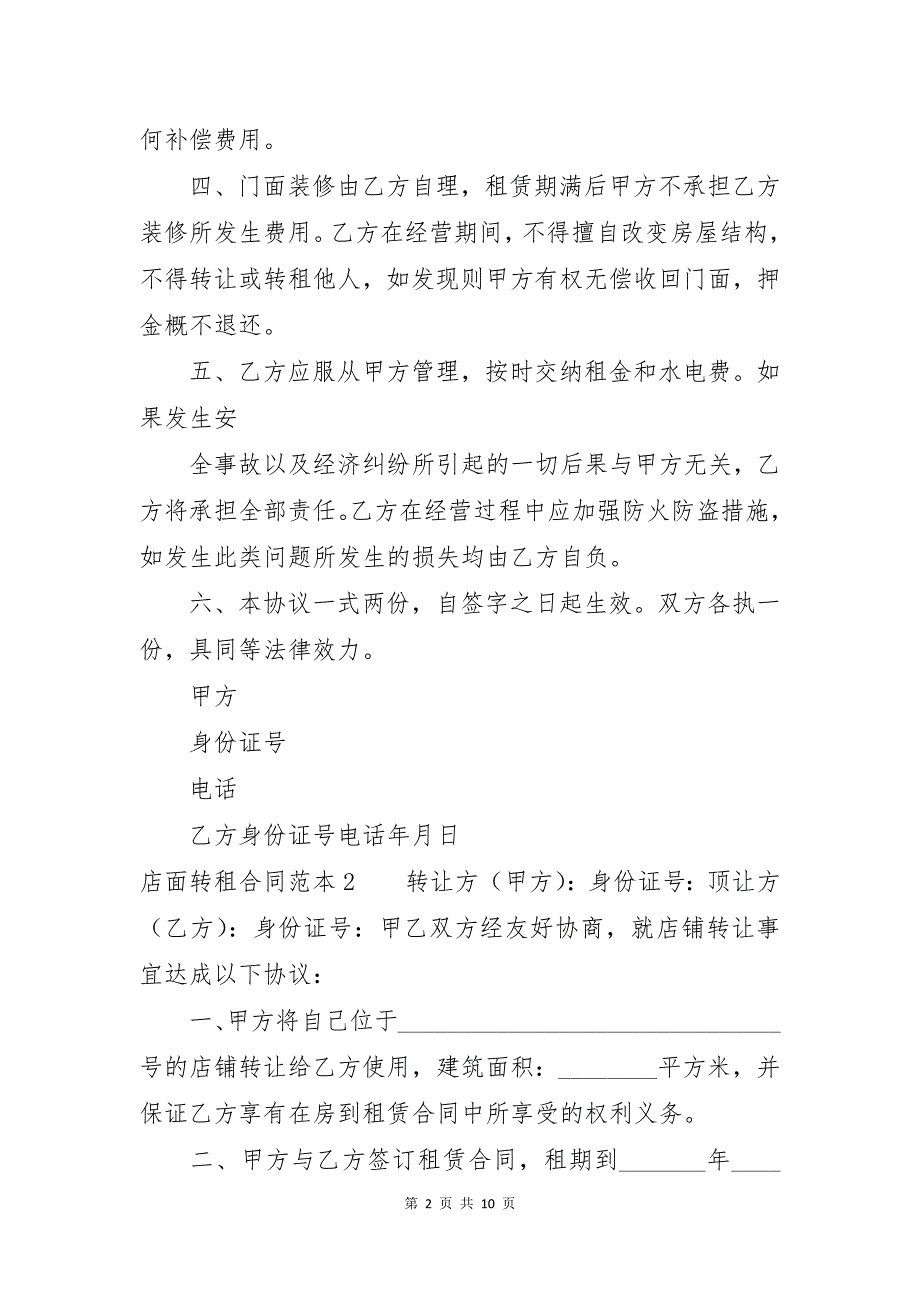 何补偿费用。
四、门面装修由乙方自理，租赁期满后甲方不承担乙方
装修所发生费用。乙方在经营期间，不得擅自改变房屋结构，
不得转让或转租他人，如发现则甲方有权无偿收回门面，押
金概不退还。
五、乙方应服从甲方管理，按时交纳租金和水电费。如
果发生安
全事故以及经济纠纷所引起的一切后果与甲方无关，乙
方将承担全部责任。乙方在经营过程中应加强防火防盗措施，
如发生此类问题所发生的损失均由乙方自负。
六、本协议一式两份，自签字之日起生效。双方各执一
份，具同等法律效力。
甲方
身份证号
电话
乙方身份证号电话年月日
店面转租合同范本2　　转让方（甲方）：身份证号：顶让方
（乙方）：身份证号：甲乙双方经友好协商，就店铺转让事
宜达成以下协议：
一、甲方将自己位于_______________________________
号的店铺转让给乙方使用，建筑面积：________平方米，并
保证乙方享有在房到租赁合同中所享受的权利义务。
二、甲方与乙方签订租赁合同，租期到_______年____
第 2 页 共 10 页